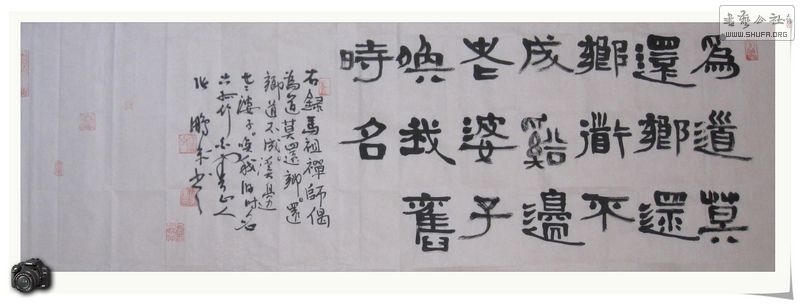 爲道莫
還鄉還
鄉衜不
成谿邊
老婆子
喚我舊
時名
右錄馬祖禪師偈
為道莫還鄉。還
鄉道不成。溪邊
老婆子。喚我旧時名
山人
書藝公社
WWW.SHUFA.ORG